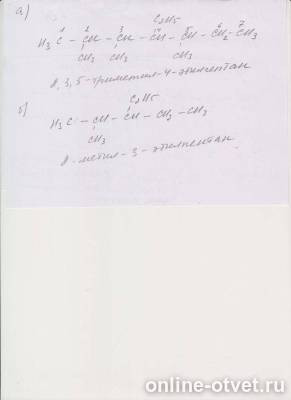 а)
C2H5
1 2 3 4 5 6 7
H3C - CH - CH - CH - CH - CH2 - CH3
CH3 CH3 CH3
2,3,5-триметил-4-этилгептан
б)
C2H5
H3C - CH - CH - CH2 - CH3
CH3
2-метил-3-этилпентан
online-otvet.ru